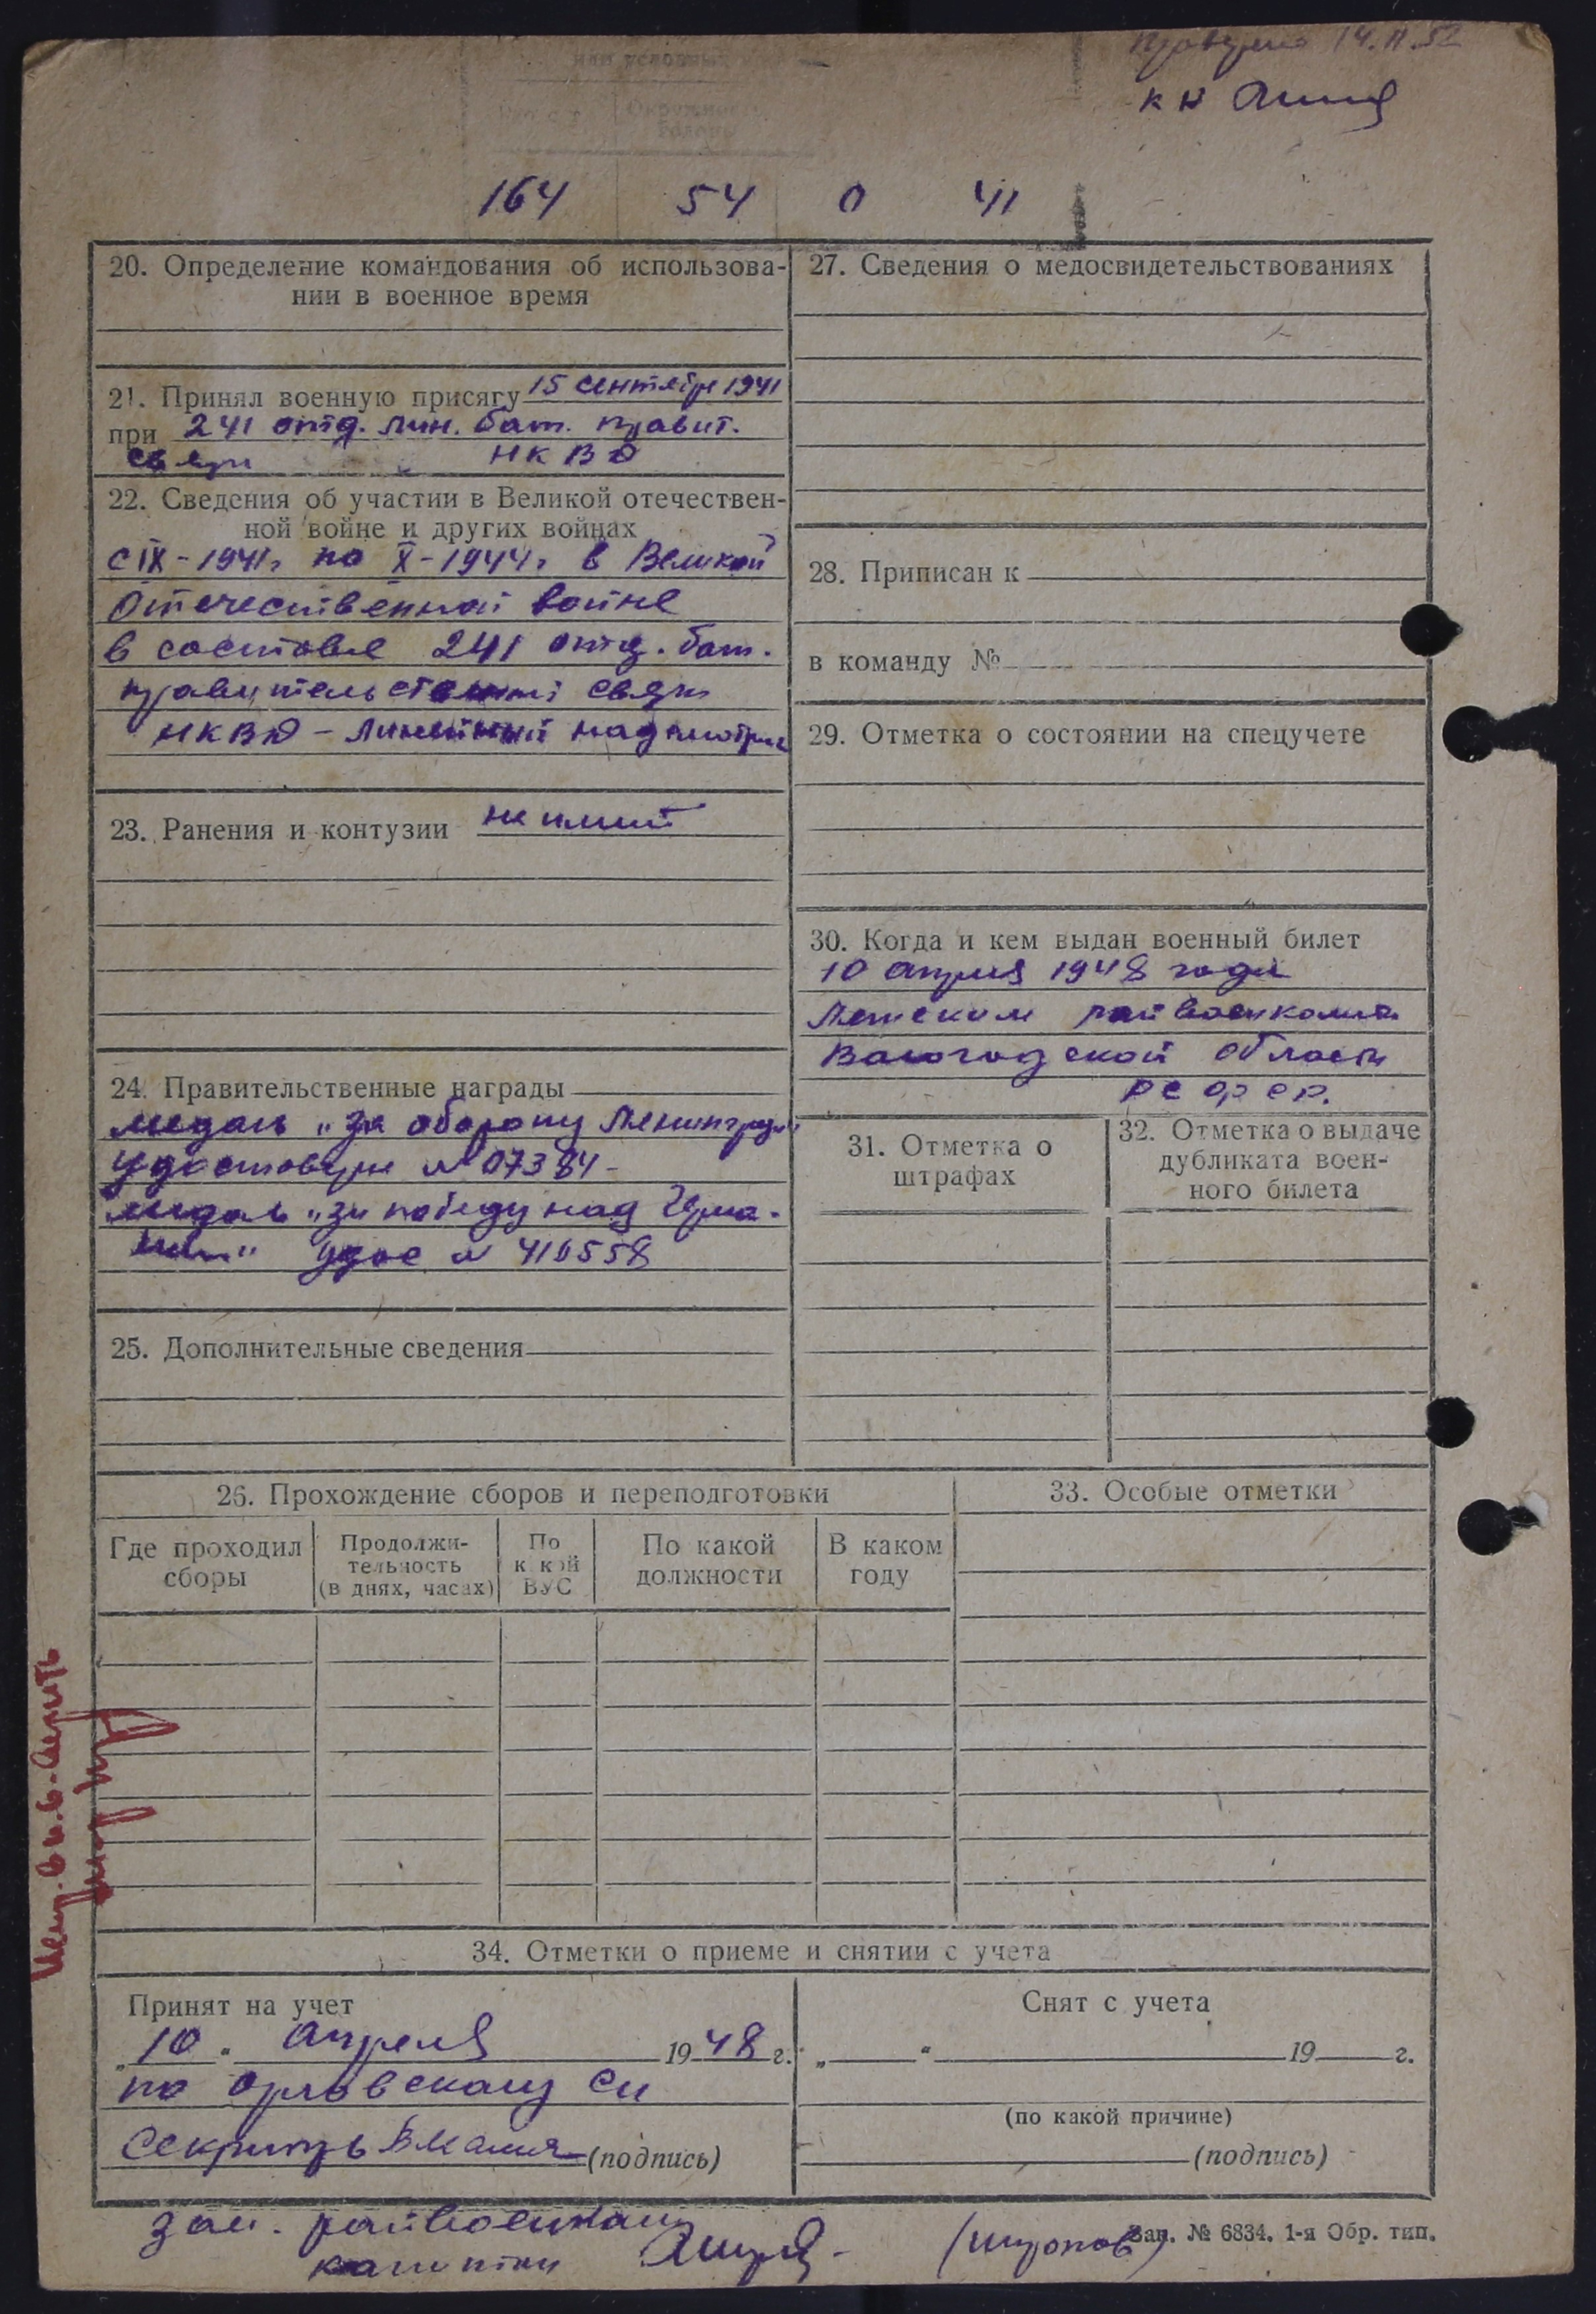 14.II.52
или условных
Окружность
головы
164 54 0 41
20. Определение командования об использова-
нии в военное время
21. Принял военную присягу 15 сентября 1941
при 241 отд. лин. бат. правит.
связи НКВД
22. Сведения об участии в Великой отечествен-
ной войне и других войнах
с IX-1941г по X-1944г в Великой
Отечественной войне
в составе 241 отд. бат.
правительственной связи
НКВД - линейный надсмотрщ
23. Ранения и контузии не имеет
24. Правительственные награды
медаль „За оборону Ленинграда"
удостовере № 07384 -
медаль „за победу над Герма-
нии" удос № 410558
25. Дополнительные сведения
27. Сведения о медосвидетельствованиях
28. Приписан к
в команду №
29. Отметка о состоянии на спецучете
30. Когда и кем выдан военный билет
10 апреля 1948 года
райвоенкомат
Вологодской области
РСФСР.
31. Отметка о
штрафах
32. Отметка о выдаче
дубликата воен-
ного билета
26. Прохождение сборов и переподготовки
Где проходил
сборы
Продолжи-
тельность
(в днях, часах)
По
какой
ВУС
По какой
должности
В каком
году
33. Особые отметки
34. Отметки о приеме и снятии с учета
Принят на учет
„10" апреля 1948 г.
по Орловскому с/с
Секретарь (подпись)
Снят с учета
„ " 19 г.
(по какой причине)
(подпись)
зам. райвоенкома
капитан (Широпов)
Зап. № 6834. 1-я Обр. тип.